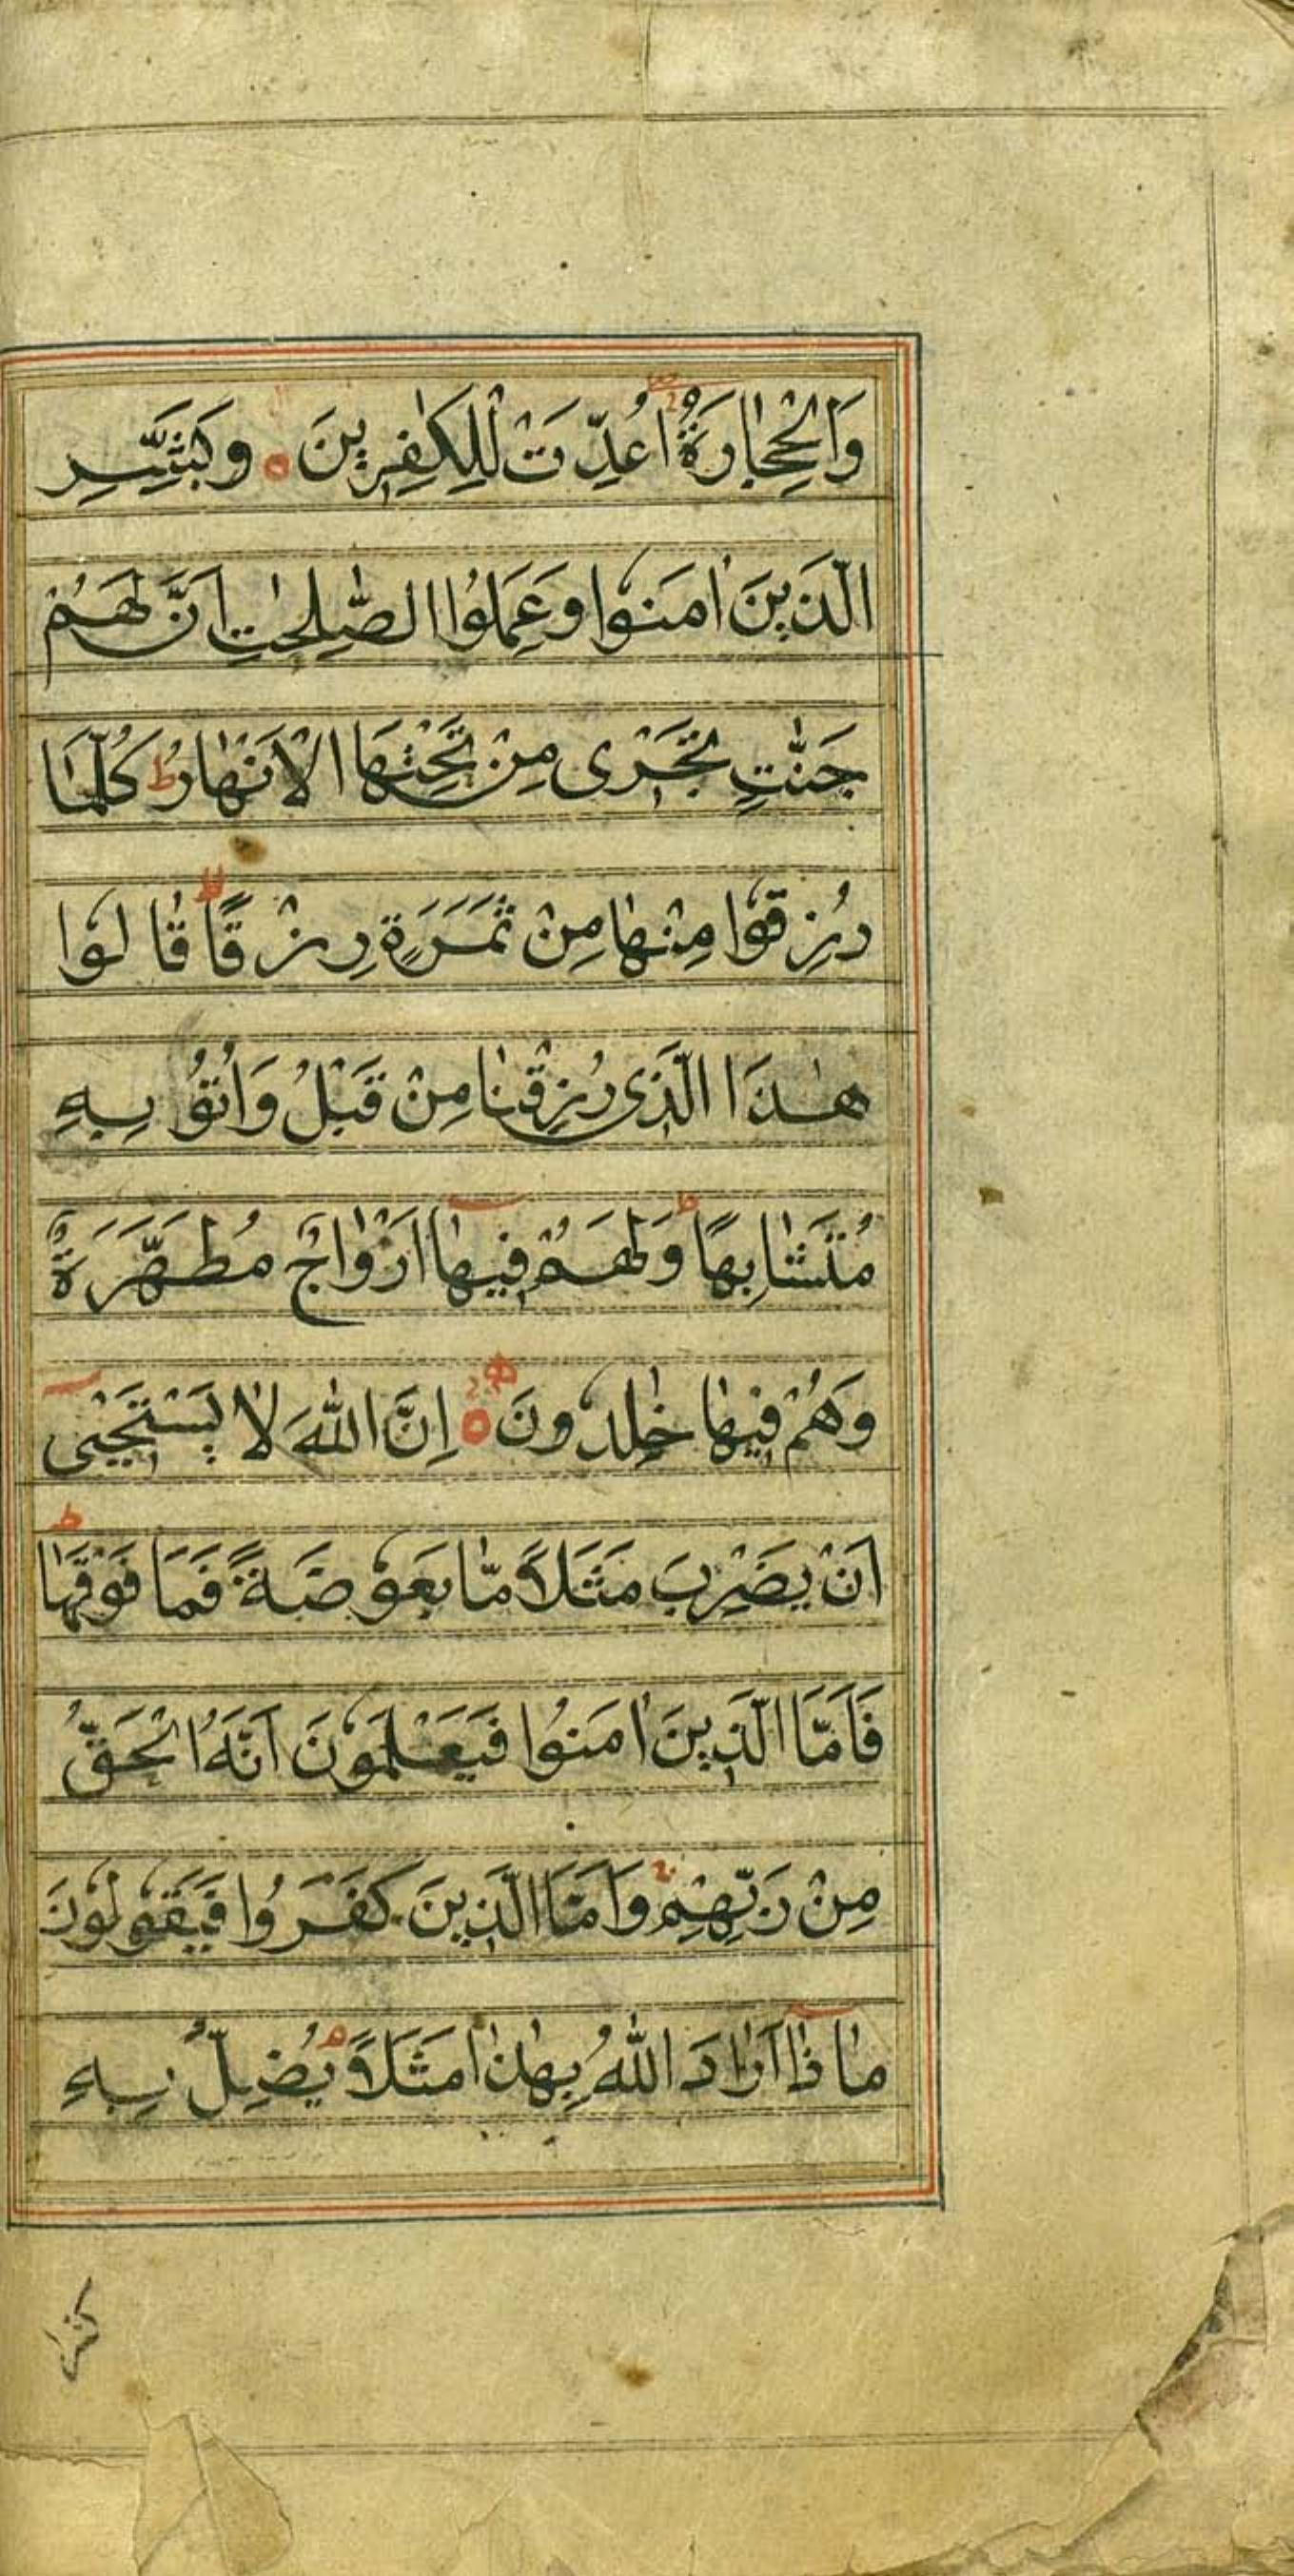 وَالْحِجَارَةُ اُعِدَّتْ لِلْكٰفِرِينَ ۝ وَبَشِّرِ
الَّذِينَ اٰمَنُوا وَعَمِلُوا الصّٰلِحٰتِ اَنَّ لَهُمْ
جَنّٰتٍ تَجْرِى مِنْ تَحْتِهَا الْاَنْهَارُ ط كُلَّمَا
رُزِقُوا مِنْهَا مِنْ ثَمَرَةٍ رِزْقًا لا قَالُوا
هٰذَا الَّذِى رُزِقْنَا مِنْ قَبْلُ وَاُتُوْ بِهٖ
مُتَشَابِهًا ط وَلَهُمْ فِيهَا اَزْوَاجٌ مُطَهَّرَةٌ
وَهُمْ فِيهَا خٰلِدُونَ ۝ اِنَّ اللّٰهَ لَا يَسْتَحْيٖى
اَنْ يَضْرِبَ مَثَلًا مَّا بَعُوْضَةً فَمَا فَوْقَهَا ط
فَاَمَّا الَّذِينَ اٰمَنُوا فَيَعْلَمُوْنَ اَنَّهُ الْحَقُّ
مِنْ رَبِّهِمْ وَاَمَّا الَّذِينَ كَفَرُوا فَيَقُوْلُوْنَ
مَاذَا اَرَادَ اللّٰهُ بِهٰذَا مَثَلًا م يُضِلُّ بِهٖ